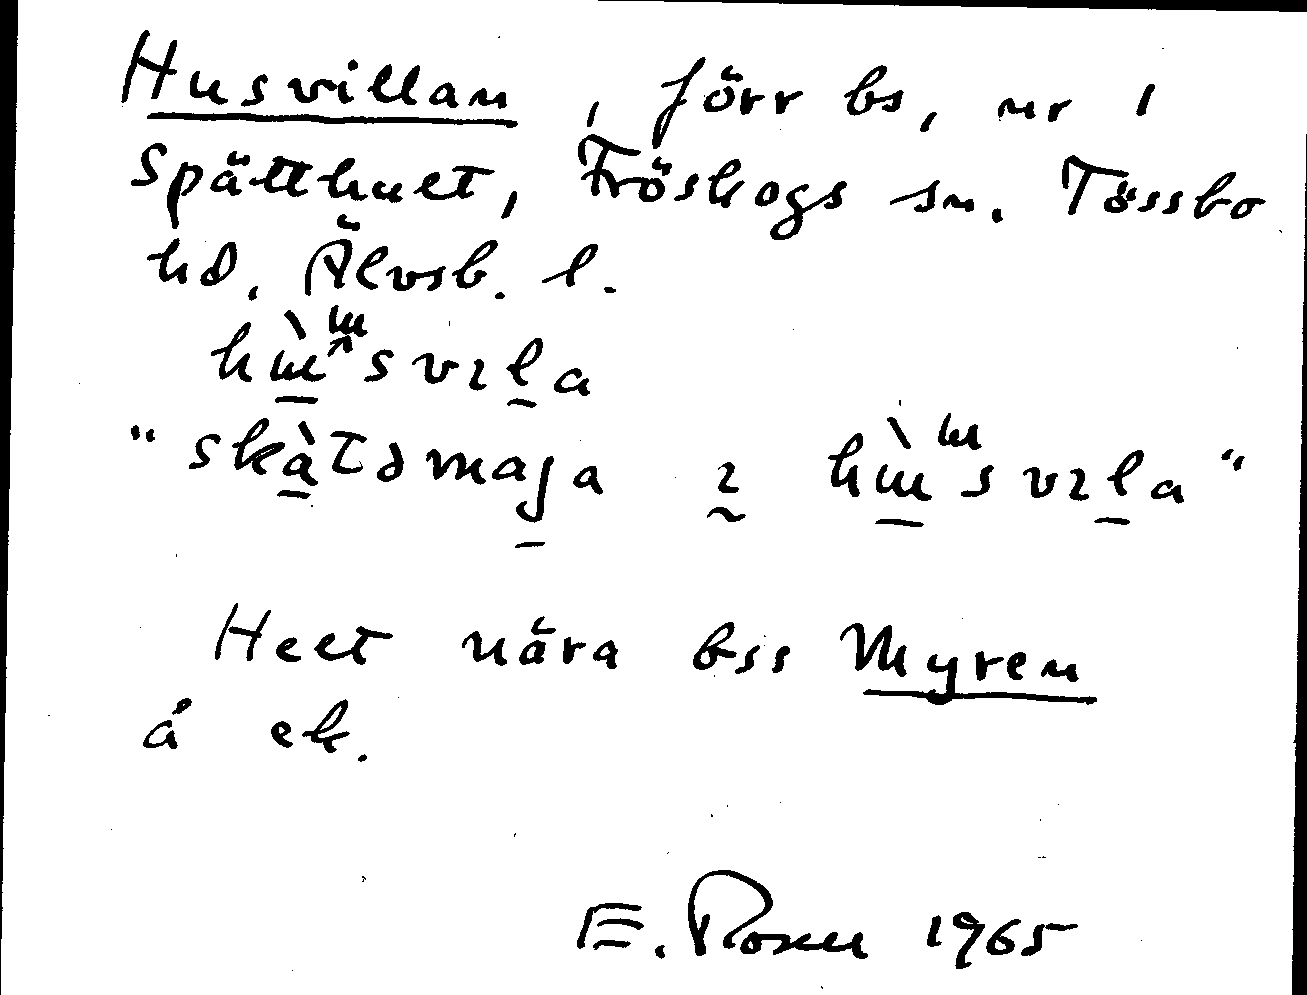 Husvillan, förr bs, nr 1
Spätthult, Fröskogs sn. Tössbo
hd, Älvsb. l.
hɯ̀ɯsvɩla
"skàtəmaja ɩ hɯ̀ɯsvɩla"
Helt nära bss Myren
å ek.
E. Rosell 1965